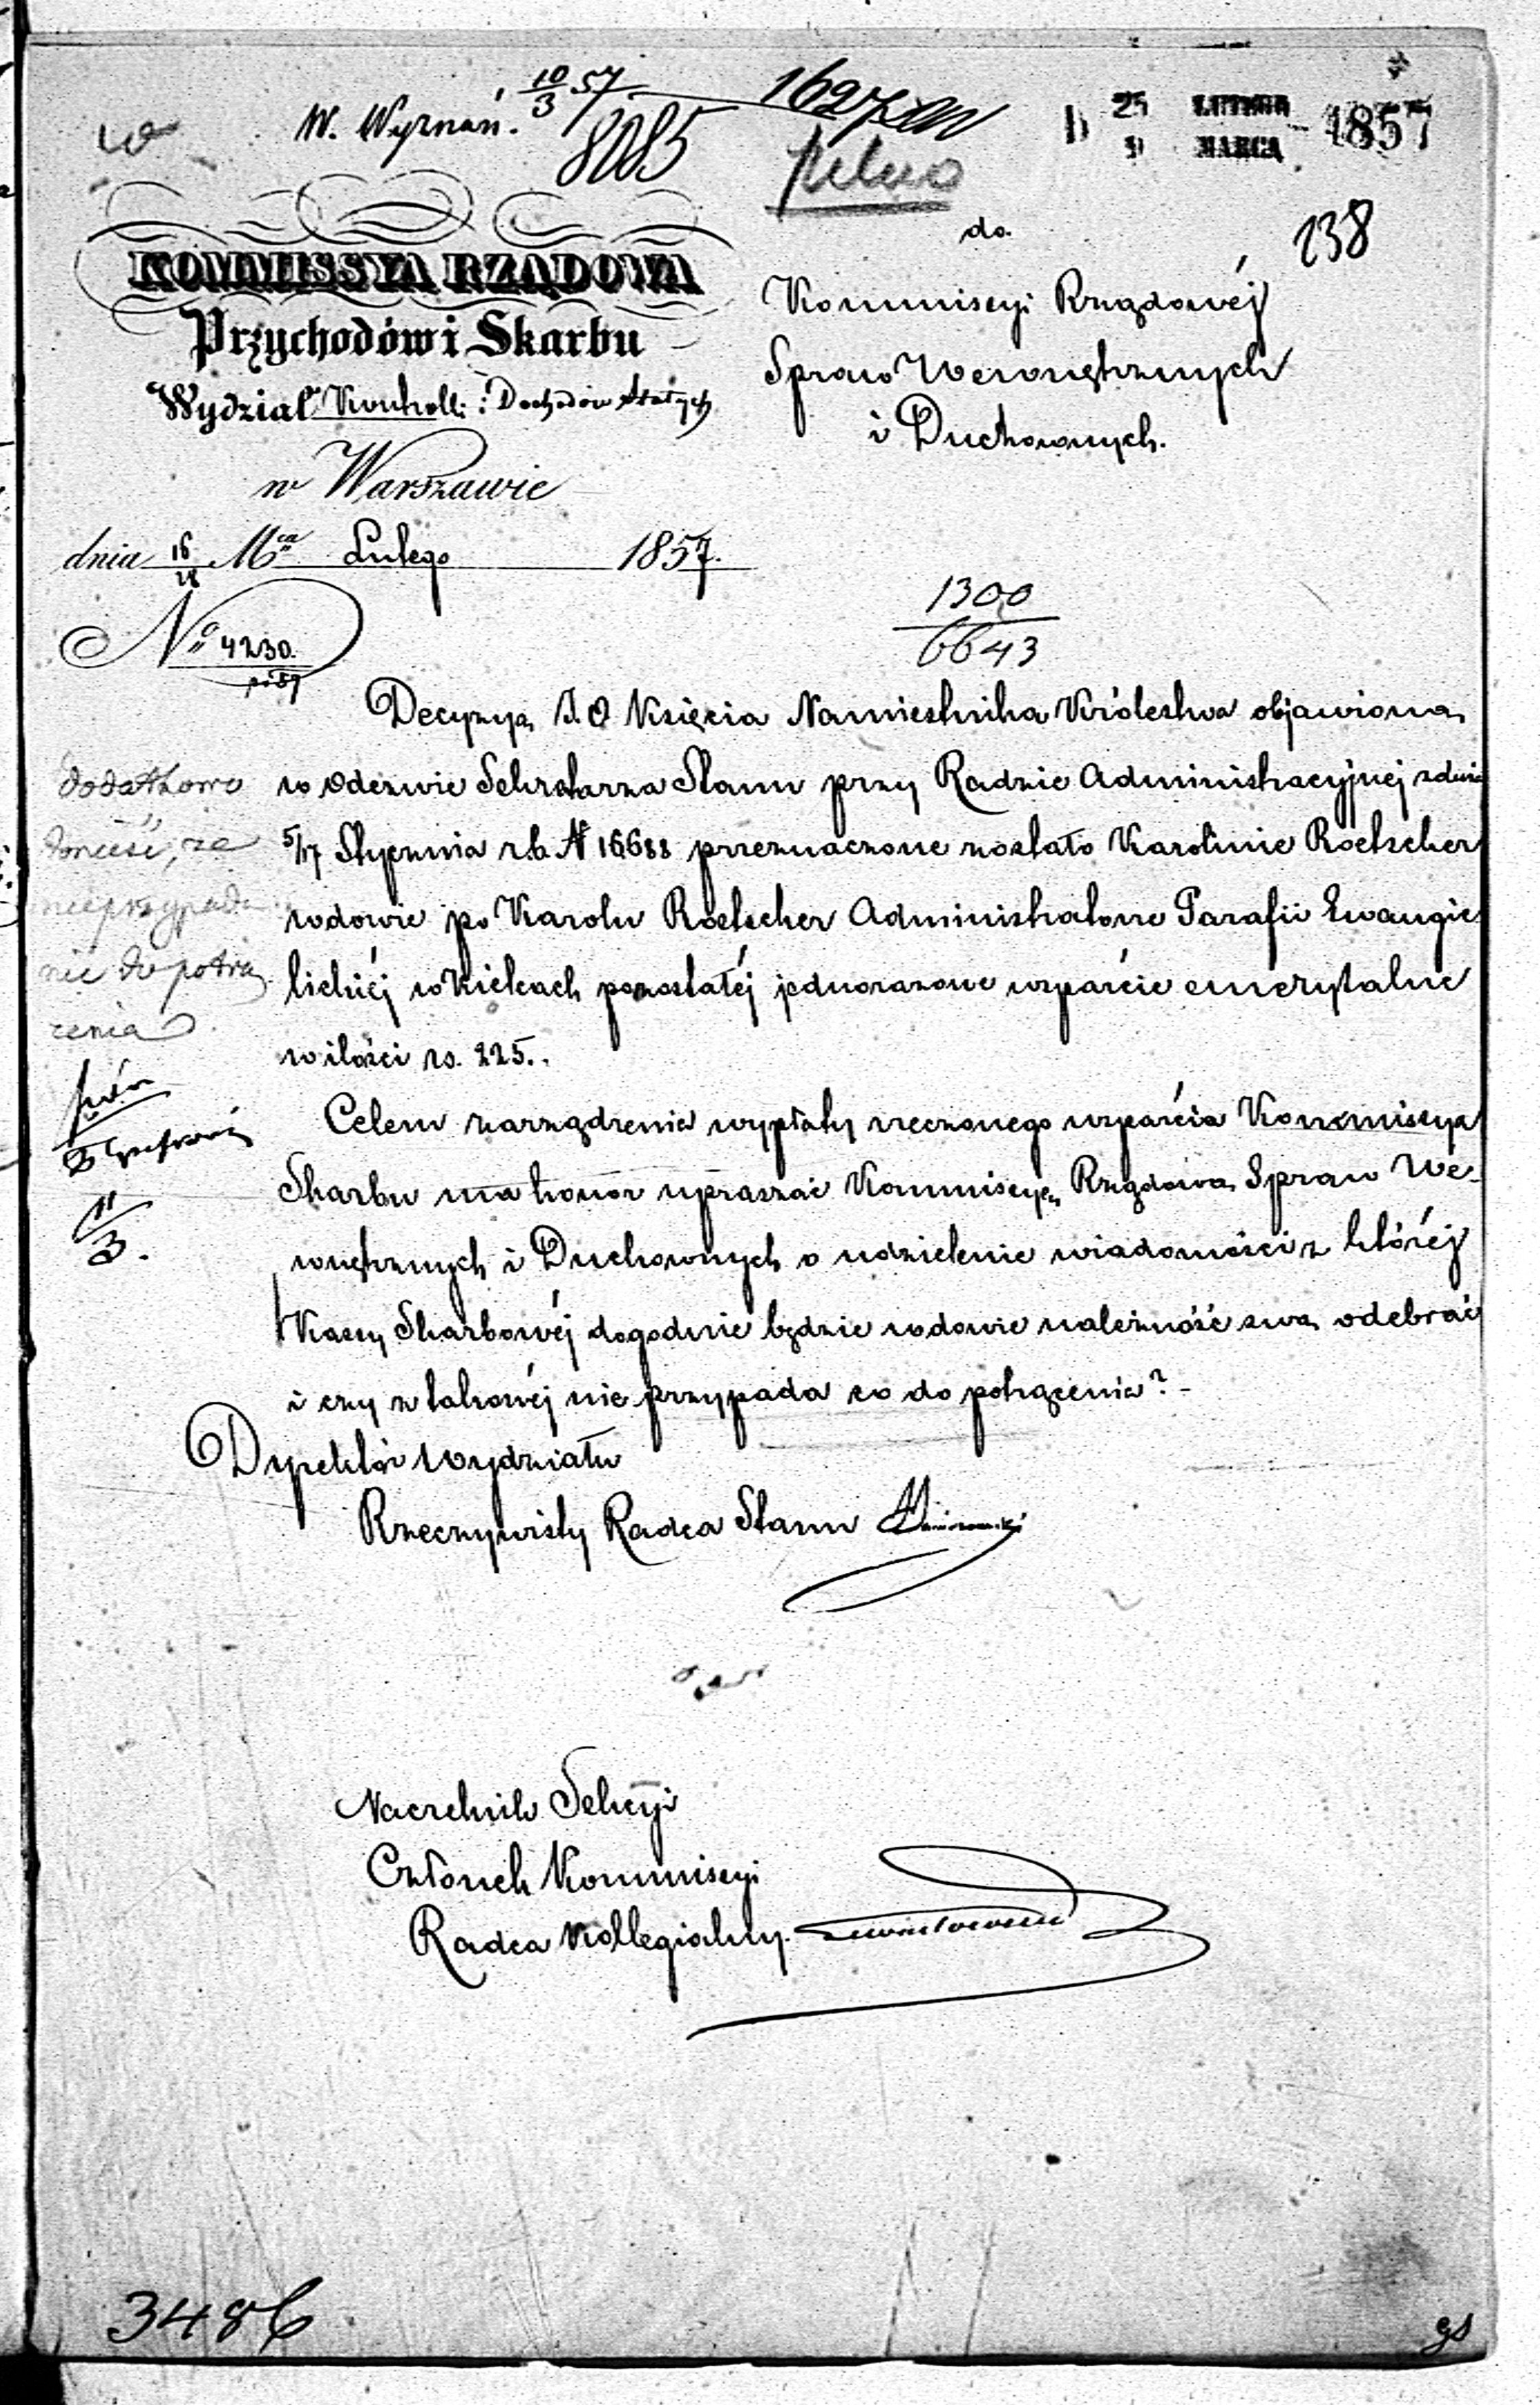 W. Wyznań. 10/3 57
8085
1627
pilno
25 LUTEGO
9 MARCA 1857
238
KOMMISSYA RZĄDOWA
Przychodów i Skarbu
Wydział Kontrolli i Dochodów Stałych
w Warszawie
dnia 16/28 Mca Lutego 1857.
No 4230.
do
Kommissyi Rządowéj
Spraw Wewnętrznych
i Duchownych.
1300
6643
Decyzyą J. O Księcia Namiestnika Królestwa objawioną
w Odezwie Sekretarza Stanu przy Radzie Administracyjnej z dnia
5/17 Stycznia r.b. No 16688 przeznaczone zostało Karolinie Roetscher
wdowie po Karolu Roetscher Administratorze Parafii Ewangie
lickiéj w Kielcach pozostałéj jednorazowe wsparcie emerytalne
w ilości rs. 225.
Celem zarządzenia wypłaty rzeczonego wsparcia Kommissya
Skarbu ma honor upraszać Kommissyą Rządową Spraw We-
wnętrznych i Duchownych o udzielenie wiadomości z któréj
Kassy Skarbowéj dogodnie będzie wdowie należność swą odebrać
i czy z takowéj nie przypada co do potrącenia? -
dodatkowo
donieść, że
nieprzypada
nic do potrą
cenia
11/3.
Dyrektor Wydziału
Rzeczywisty Radca Stanu
Naczelnik Sekcyi
Członek Kommissyi
Radca Kollegialny
3486